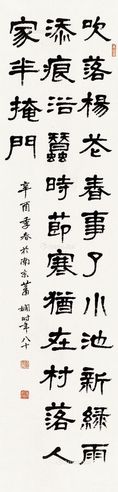 吹落楊花春事了小池新綠雨
添痕浴蠶時節寒猶在村落人
家半掩門
辛酉季春於南京蕭
嫻時年八十